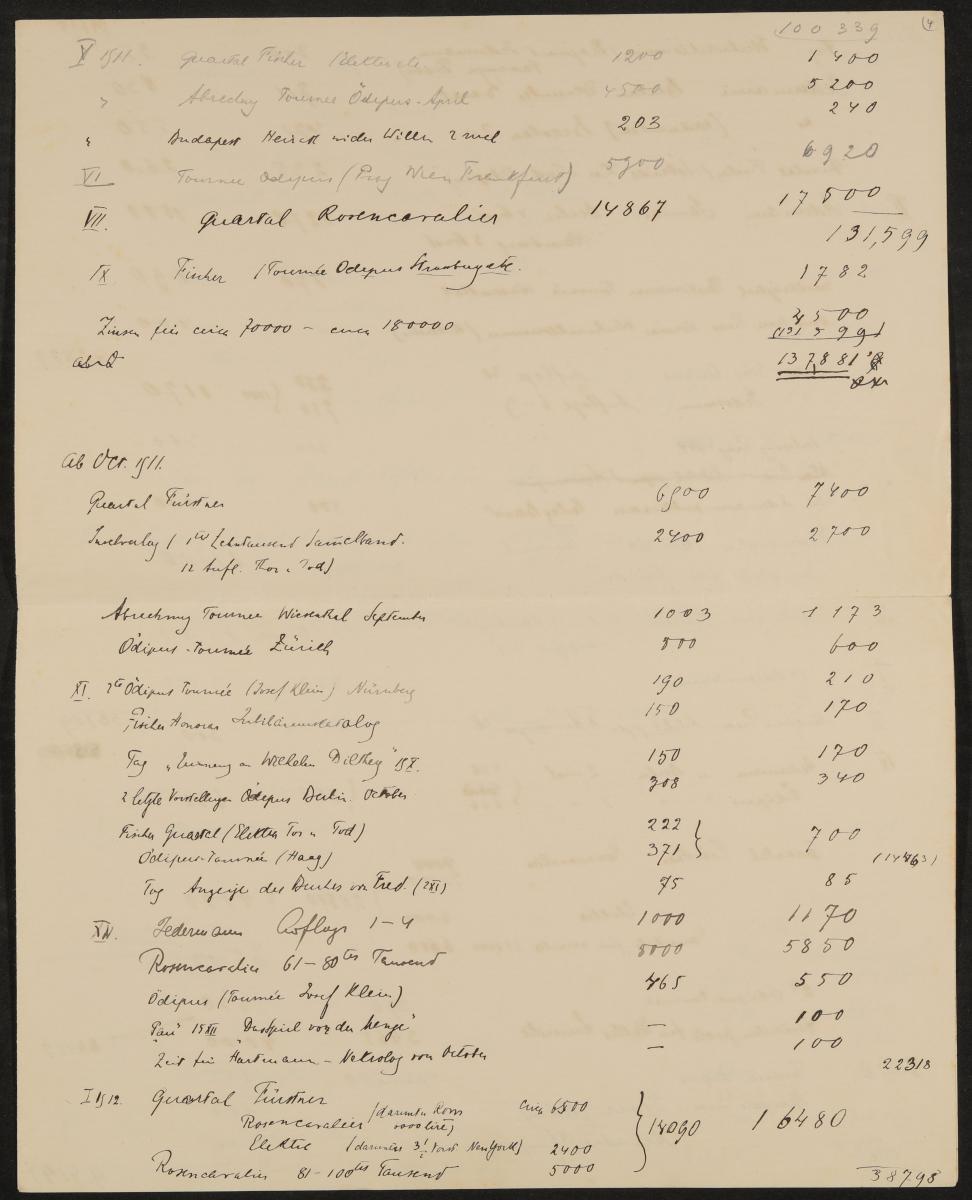 100 339 (4
V 1911. Quartal Fischer (Elektra etc 1200 1400
" Abrechng Tournee Ödipus-April 4500 5200
" Budapest Heirat wider Willen 2 mal 203 240
VI Tournee Ödipus (Prag Wien Frankfurt) 5900 6920
VII. Quartal Rosencavalier 14867 17500
131,599
IX Fischer (Tournée Ödipus Strassburg etc. 1782
Zinsen für circa 70000 – circa 180000 4500
(131 599)
137,881
ab Oct. 1911.
Quartal Fürstner 6900 7400
Inselverlag ( 1te Zehntausend Samelband. 2400 2700
12 Aufl. Thor u Tod)
Abrechnung Tournee Wiesenthal September 1003 1173
Ödipus-Tournée Zürich 500 600
XI. 2te Ödipus Tournée (Josef Klein) Nürnberg 190 210
Fischer Honorar Jubiläumskatalog 150 170
Tag "Erinnerung an Wilhelm Dilthey" 19 X. 150 170
2 letzte Vorstellungen Ödipus Berlin. October 308 340
Fischer Quartal (Elektra Tor u Tod) 222 } 700
Ödipus-Tournée (Haag) 371
(14463)
Tag Anzeige des Buches von Fred. (2 XI) 75 85
XII. Jedermann Auflage 1–4 1000 1170
Rosencavalier 61–80tes Tausend 5000 5850
Ödipus (Tournée Josef Klein) 465 550
"Pan" 15 XII Das Spiel vor der Menge – 100
Zeit für Hartmann – Nekrolog von October – 100
22318
I 1912. Quartal Fürstner
Rosencavalier (darunter Rom lire) circa 6500 } 14090 16480
Elektra (darunter 3 Vorst New York) 2400
Rosencavalier 81–100tes Tausend 5000
38798